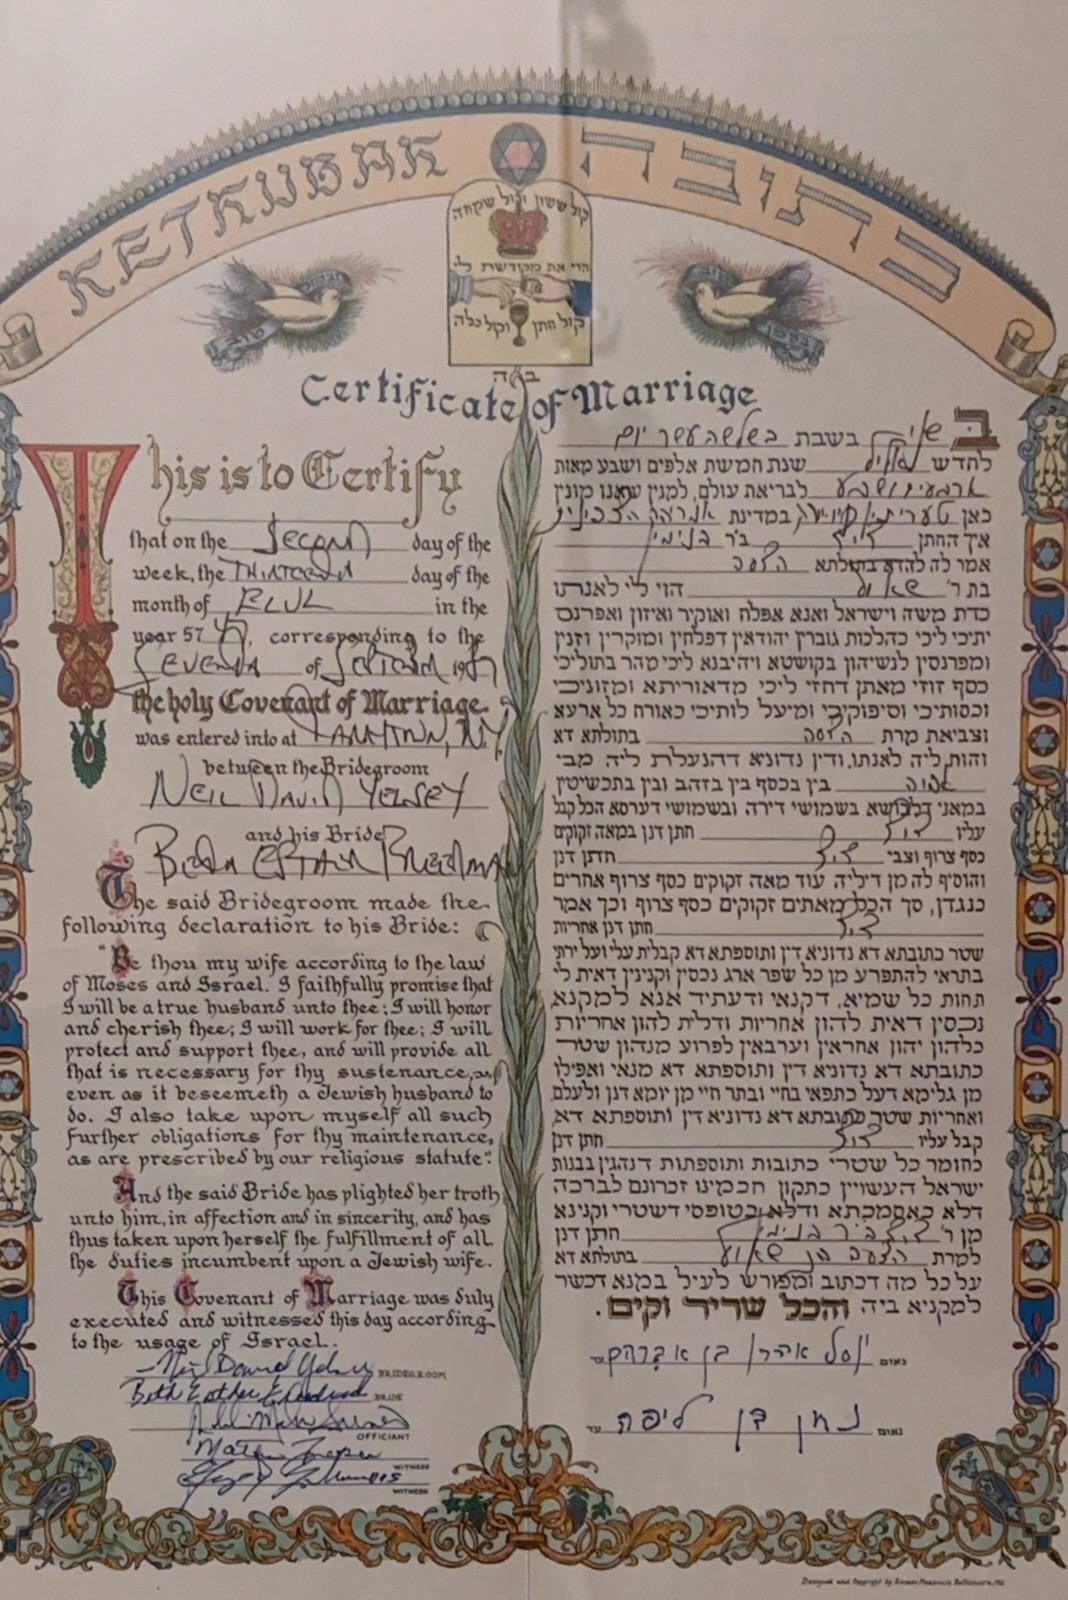 KETHUBAH
כתובה
קול ששון וקול שמחה
הרי את מקודשת לי
קול חתן וקול כלה
טוב
ב ה
Certificate of Marriage
This is to Certify
that on the Second day of the
week, the Thirteenth day of the
month of ELUL in the
year 57 47, corresponding to the
Seventh of September 1987
the holy Covenant of Marriage
was entered into at N.Y.
between the Bridegroom
NEIL DAVID YELSEY
and his Bride
The said Bridegroom made the
following declaration to his Bride:
"Be thou my wife according to the law
of Moses and Israel. I faithfully promise that
I will be a true husband unto thee; I will honor
and cherish thee; I will work for thee; I will
protect and support thee, and will provide all
that is necessary for thy sustenance,
even as it beseemeth a Jewish husband to
do. I also take upon myself all such
further obligations for thy maintenance,
as are prescribed by our religious statute."
And the said Bride has plighted her troth
unto him, in affection and in sincerity, and has
thus taken upon herself the fulfillment of all
the duties incumbent upon a Jewish wife.
This Covenant of Marriage was duly
executed and witnessed this day according
to the usage of Israel.
BRIDEGROOM
Beth Esther BRIDE
OFFICIANT
WITNESS
WITNESS
ב שני בשבת בשלשה עשר יום
לחדש אלול שנת חמשת אלפים ושבע מאות
ארבעים ושבע לבריאת עולם, למנין שאנו מונין
כאן במדינת אמריקה הצפונית
איך החתן דוד ב״ר בנימין
אמר לה להדא בתולתא הדסה
בת ר׳ שאול הוי לי לאנתו
כדת משה וישראל ואנא אפלח ואוקיר ואיזון ואפרנס
יתיכי ליכי כהלכות גוברין יהודאין דפלחין ומוקרין וזנין
ומפרנסין לנשיהון בקושטא ויהיבנא ליכי מהר בתוליכי
כסף זוזי מאתן דחזי ליכי מדאוריתא ומזוניכי
וכסותיכי וסיפוקיכי ומיעל לותיכי כאורח כל ארעא
וצביאת מרת הדסה בתולתא דא
והות ליה לאנתו, ודין נדוניא דהנעלת ליה מבי
אבוה בין בכסף בין בזהב ובין בתכשיטין
במאני דלבושא בשמושי דירה ובשמושי דערסא הכל קבל
עליו דוד חתן דנן במאה זקוקים
כסף צרוף וצבי דוד חתן דנן
והוסיף לה מן דיליה עוד מאה זקוקים כסף צרוף אחרים
כנגדן, סך הכל מאתים זקוקים כסף צרוף וכך אמר
דוד חתן דנן אחריות
שטר כתובתא דא נדוניא דין ותוספתא דא קבלית עלי ועל ירתי
בתראי להתפרע מן כל שפר ארג נכסין וקנינין דאית לי
תחות כל שמיא, דקנאי ודעתיד אנא למקנא,
נכסין דאית להון אחריות ודלית להון אחריות
כלהון יהון אחראין וערבאין לפרוע מנהון שטר
כתובתא דא נדוניא דין ותוספתא דא מנאי ואפילו
מן גלימא דעל כתפאי בחיי ובתר חיי מן יומא דנן ולעלם,
ואחריות שטר כתובתא דא נדוניא דין ותוספתא דא
קבל עליו דוד חתן דנן
כחומר כל שטרי כתובות ותוספתות דנהגין בבנות
ישראל העשויין כתקון חכמינו זכרונם לברכה
דלא כאסמכתא ודלא כטופסי דשטרי וקנינא
מן ר׳ דוד ב״ר בנימין חתן דנן
למרת הדסה בת שאול בתולתא דא
על כל מה דכתוב ומפורש לעיל במנא דכשר
למקניא ביה והכל שריר וקים.
נאום אהרן בן אברהם עד
נאום נתן בן ליפה עד
Designed and Copyright by Baltimore, Md.